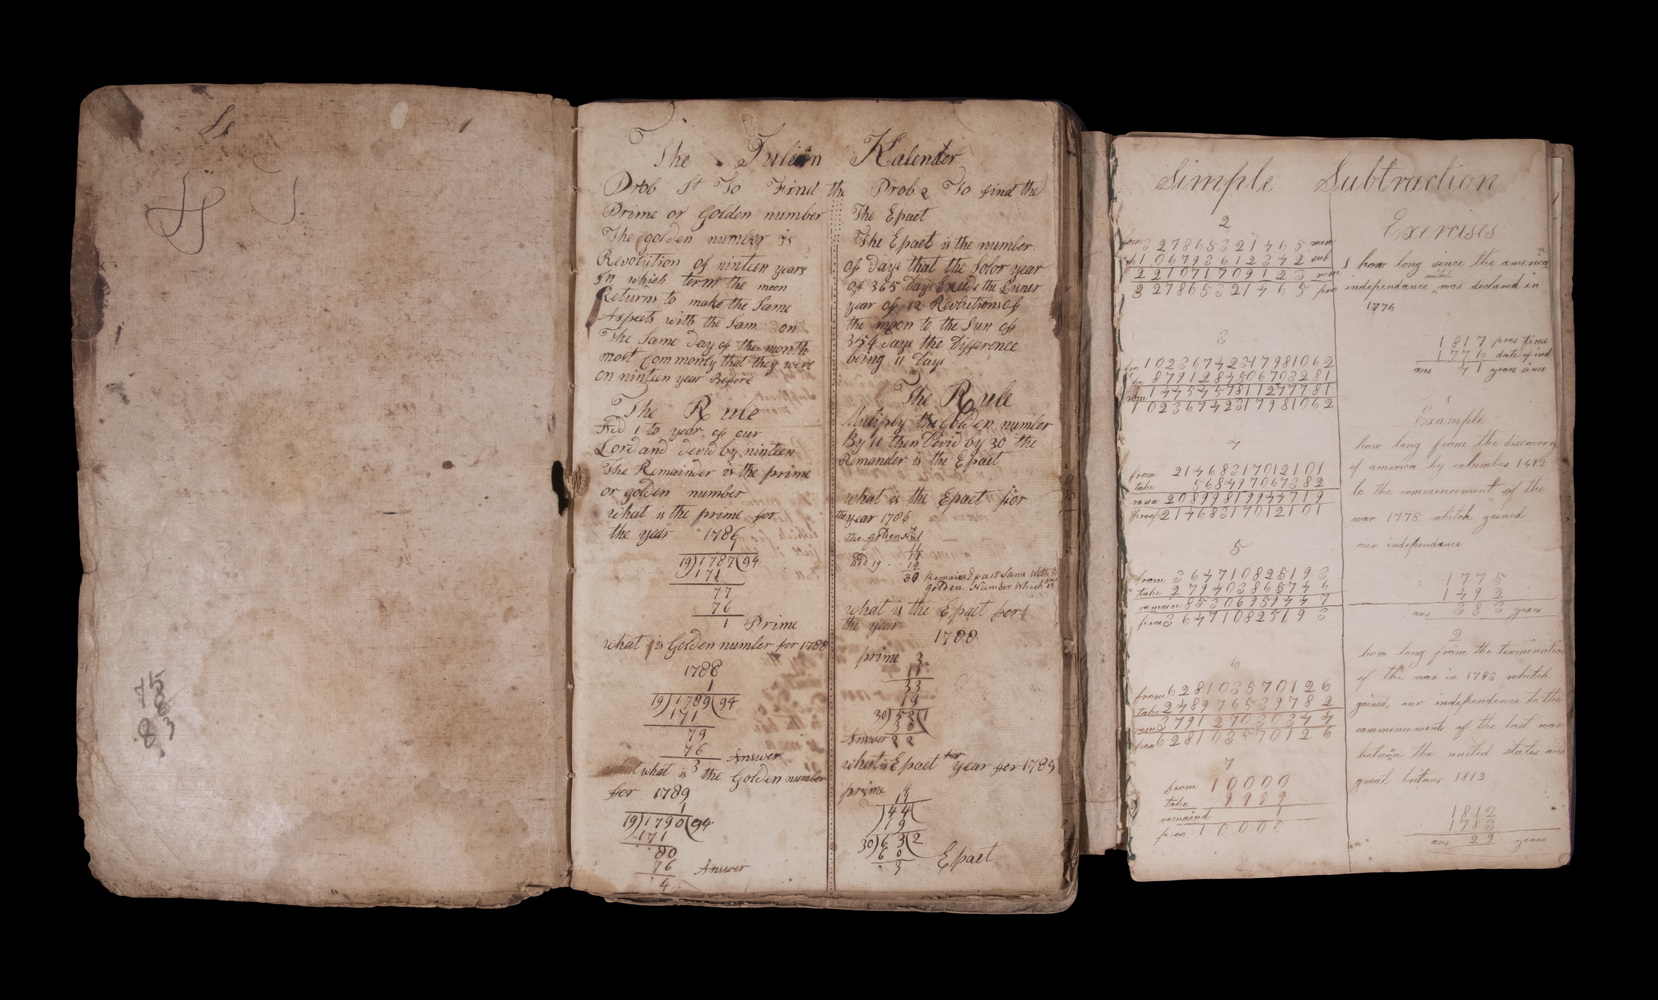 75
88
83
The Julian Kalender
Prob 1st To Find the
Prime or Golden number
The golden number is
Revolution of ninteen years
In which term the moon
Returns to make the Same
Aspects with the Sam on
The Same day of the month
most Commonly that they were
on ninteen year Before
The Rule
Ad 1 to year of our
Lord and devid by ninteen
The Remainder is the prime
or golden number
what is the prime for
the year 1786
1
19)1787(94
171
77
76
1 Prime
what is Golden number for 1788
1788
1
19)1789(94
171
79
76
3 Answer
what is the Golden number
for 1789
1
19)1790(94
171
80
76
4 Answer
Prob 2 To find the
The Epact
The Epact is the number
of days that the Solor year
of 365 days Exceeds the Luner
year of 12 Revolutions of
the moon to the Sun of
354 days the Difference
being 11 days
The Rule
Multiply the Golden number
By 11 then Devid by 30 the
Remander is the Epact
what is the Epact for
the year 1786
the golden Nul
11
Add 19
30
golden Number Which
what is the Epact for
the year 1788
prime 3
11
33
19
30)52(1
30
Answer 22
what is Epact for year for 1789
prime 4
11
44
19
30)63(2
60
3 Epact
Simple Subtraction
2
from 327865321465 min
106793612342 sub
221071709123 rem
327865321465 pro
3
10236742317981062
8791284506703281
1445457811277781
10236742317981062
4
from 21468317012101
take 568497067382
rema 20899819944719
proof 21468317012101
5
from 364710825193
take 279403865746
remain 853069594447
proof 364710825193
6
from 628103570126
take 248976539782
3791270303444
proof 628103570126
7
from 10000
take 9999
remaind
proo 10000
Exercises
1 how long since the american
independance was declared in
1776
1817 pres time
1776 date of ind
ans 41 years since
Example
how long from the discovery
of america by columbus 1492
to the commencement of the
war 1775 whitch gained
our independance
1775
1492
ans 283 years
2
how long from the termination
of the war in 1783 whitch
gained our independence to the
commencments of the last war
between the united states and
great britans 1812
1812
1783
ans 29 years